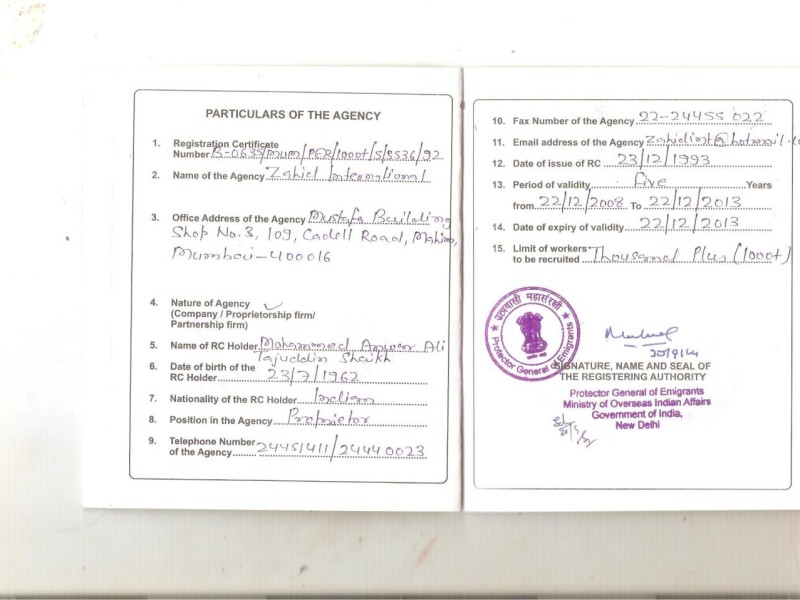 PARTICULARS OF THE AGENCY
1. Registration Certificate
Number B-0635/Mum/PER/1000+/5/5536/92
2. Name of the Agency Zahid International
3. Office Address of the Agency Mustafa Building
Shop No. 3, 109, Cadell Road, Mahim,
Mumbai-400016
4. Nature of Agency ✓
(Company / Proprietorship firm/
Partnership firm)
5. Name of RC Holder Mohammed Anwer Ali
Tajuddin Shaikh
6. Date of birth of the
RC Holder 23/7/1962
7. Nationality of the RC Holder Indian
8. Position in the Agency Proprietor
9. Telephone Number
of the Agency 24451411/24440023
10. Fax Number of the Agency 22-24455 022
11. Email address of the Agency
12. Date of issue of RC 23/12/1993
13. Period of validity five Years
from 22/12/2008 To 22/12/2013
14. Date of expiry of validity 22/12/2013
15. Limit of workers
to be recruited Thousand Plus (1000+)
उत्प्रवासी महासंरक्षी
Protector General of Emigrants
SIGNATURE, NAME AND SEAL OF
THE REGISTERING AUTHORITY
Protector General of Emigrants
Ministry of Overseas Indian Affairs
Government of India,
New Delhi